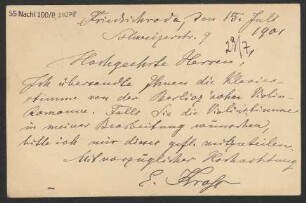 55 Nachl 100/B,
Friedrichroda, den 15. Juli
Schweizerstr. 9 1901
29/7.
Hochgeehrte Herren,
Ich übersandte Ihnen die Klavier-
stimme von der Berlioz'schen Violin-
Romanze. Falls Sie die Violinstimme
in meiner Bearbeitung wünschen,
bitte ich mir dieses gefl. mitzuteilen.
Mit vorzüglicher Hochachtung
E.